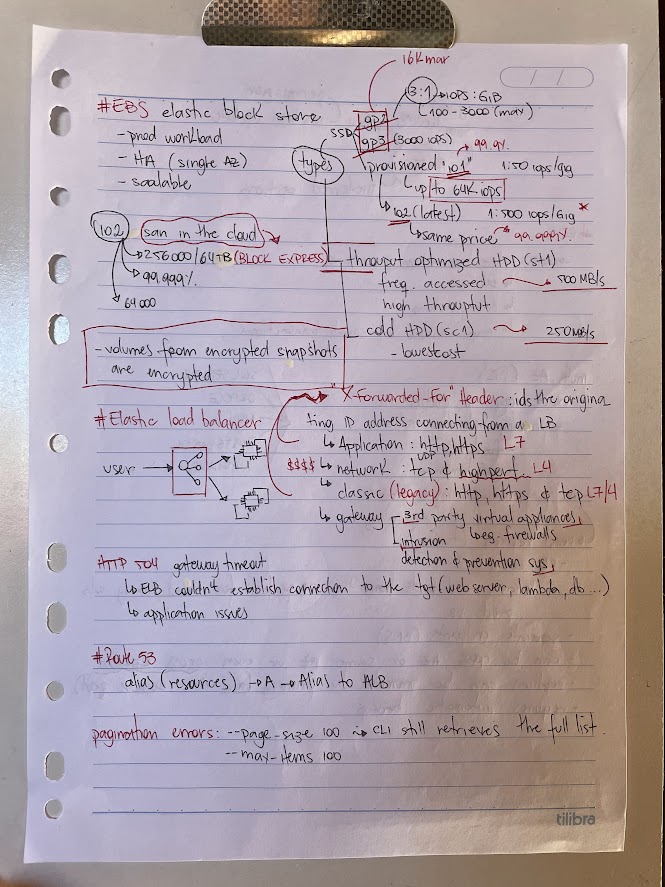 16k max
/ /
#EBS elastic block store
3:1 → IOPS : GiB
100-3000 (max)
- prod workload
- HA (single AZ)
- scalable
types
SSD
gp2
gp3 (3000 iops)
provisioned "io1" → 99.9% 1:50 iops/gig
up to 64K iops
io2 (latest) 1:500 iops/Gig *
same price 99.999%
io2 san in the cloud
→ 256000/64TB (BLOCK EXPRESS)
→ 99.999%
64000
throuput optimized HDD (st1)
freq. accessed 500 MB/s
high throuptut
cold HDD (sc1) 250 MB/s
- lowest cost
- volumes from encrypted snapshots
are encrypted
"X-Forwarded-For" Header : ids the origina
#Elastic load balancer
ting ID address connecting from a LB
↳ Application : http, https L7
$$$$ ↳ network : tcp & high perf. L4
UDP
user
↳ classic (legacy) : http, https & tcp L7/4
↳ gateway 3rd party virtual appliances,
↳ eg. firewalls
intrusion
detection & prevention sys,
HTTP 504 gateway timeout
↳ ELB couldn't establish connection to the tgt (web server, lambda, db ...)
↳ application issues
#Route 53
alias (resources) → A → Alias to ALB
pagination errors: --page-size 100 → CLI still retrieves the full list.
--max-items 100
tilibra